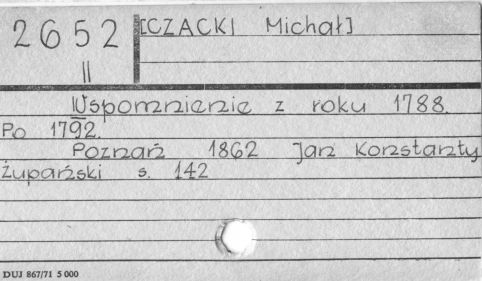 2652
II
[CZACKI Michał]
Wspomnienie z roku 1788.
Po 1792.
Poznań 1862 Jan Konstanty
Żupański s. 142
DUJ 867/71 5 000